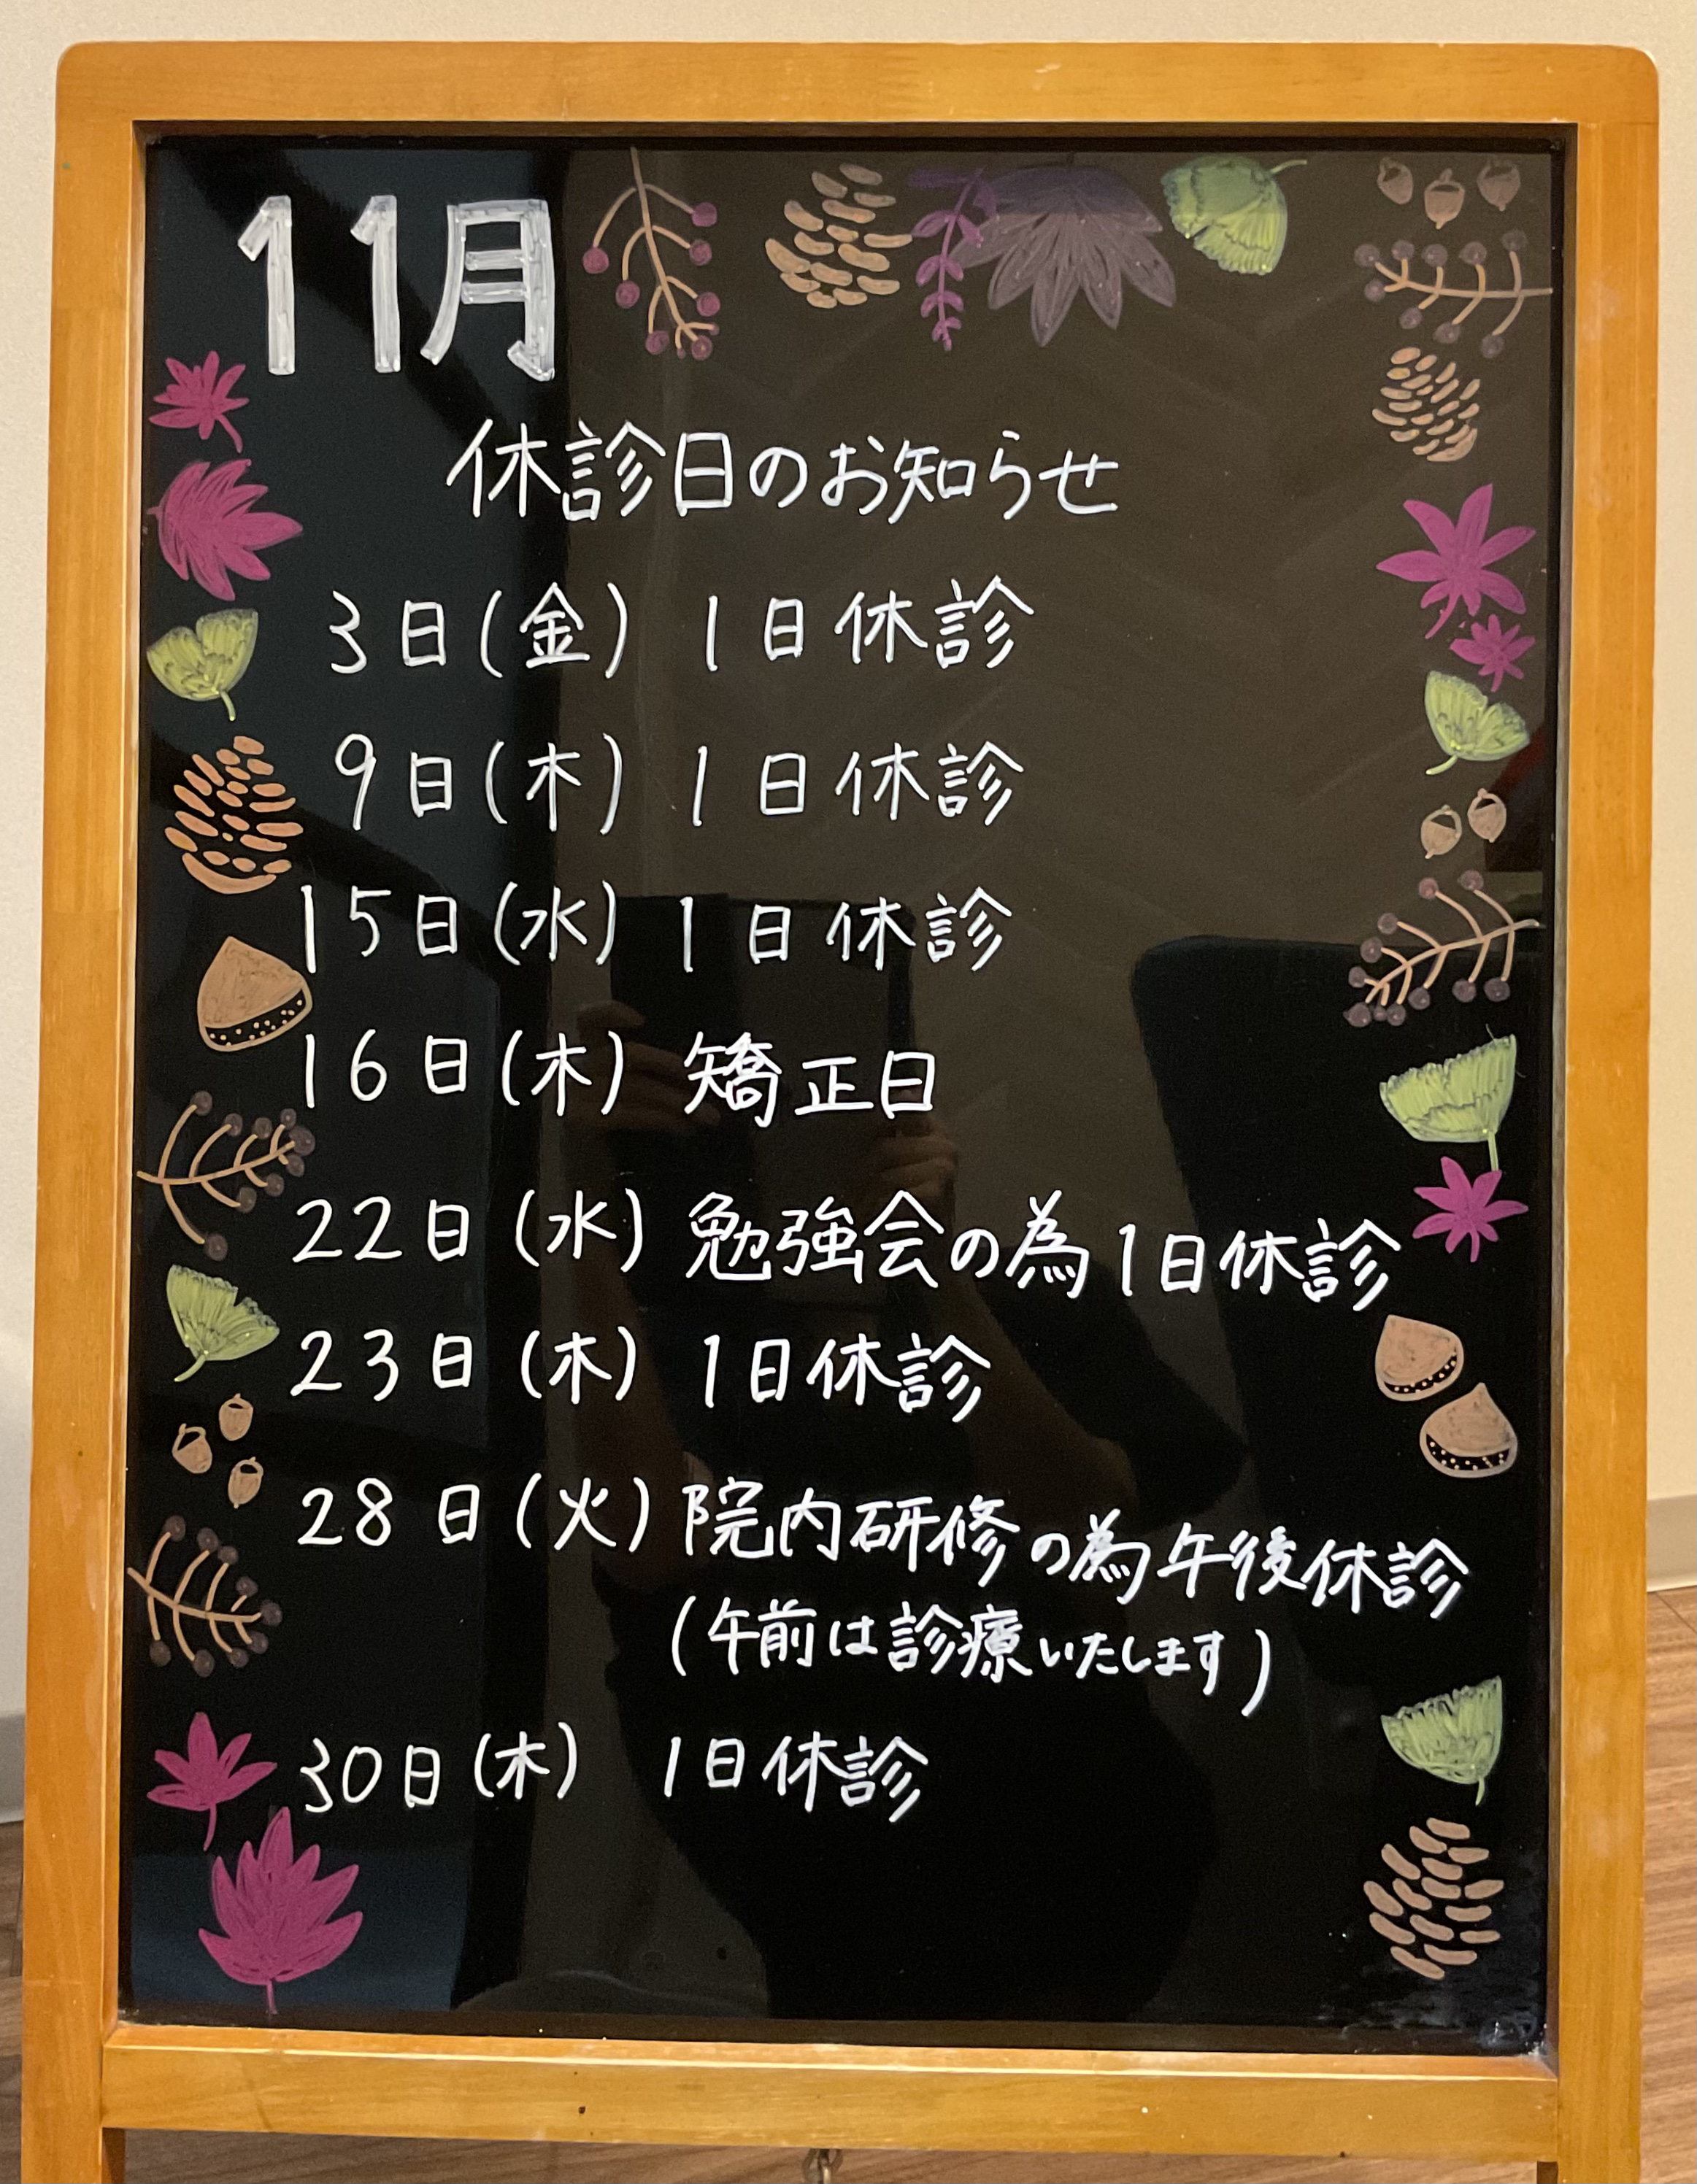 11月
休診日のお知らせ
3日(金) 1日休診
9日(木) 1日休診
15日(水) 1日休診
16日(木) 矯正日
22日(水) 勉強会の為1日休診
23日(木) 1日休診
28日(火) 院内研修の為午後休診
(午前は診療いたします)
30日(木) 1日休診